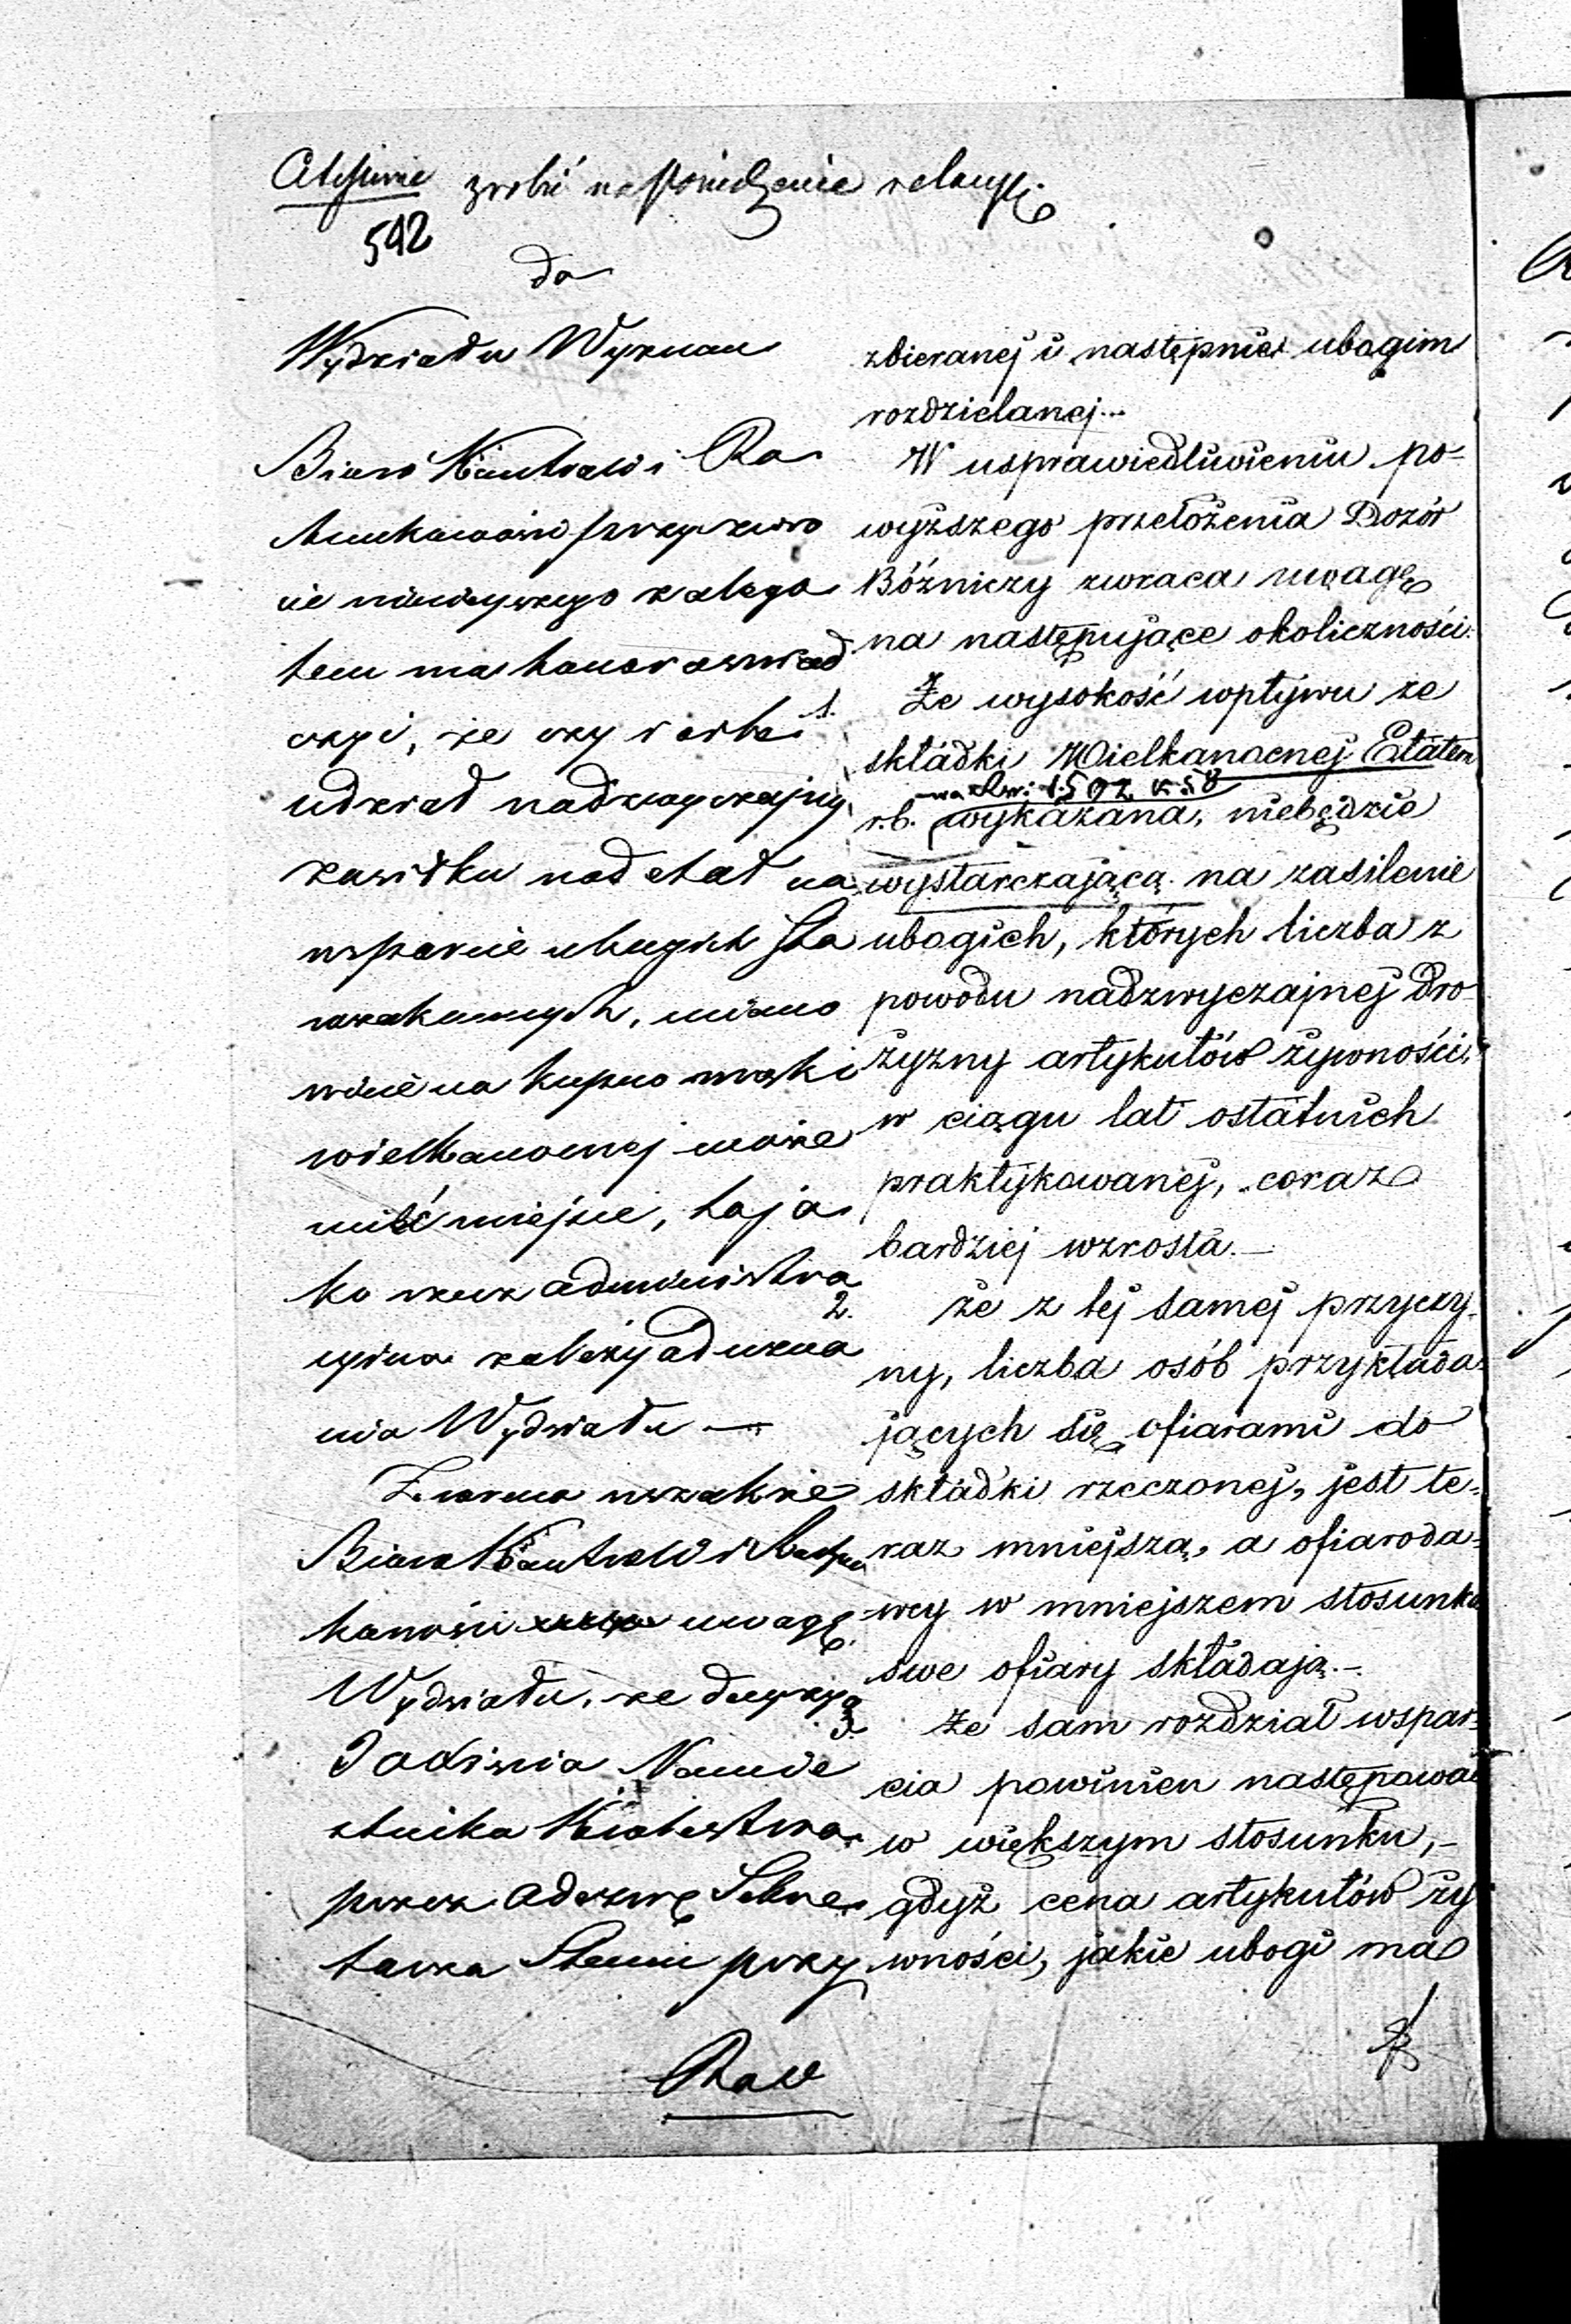 Citissime zrobić na posiedzenie relacyę.
542
do
Wydziału Wyznań
Biuro Kontroli i Ra
chunkowości przy zwro
cie niniejszego z alega
tem ma honor oświad
czyć, że czy i o ile
udział nadzwyczajny
zasiłku nad etat na
wsparcie ubogich Sta
rozakonnych, miano
wicie na kupno mąki
wielkanocnej może
mieć miejsce, to ja
ko rzecz administra
cyjna należy od uzna
nia Wydziału —
Zwraca wszakże
Biuro Kontroli i Rachun
kowości uwagę
Wydziału, że decyzyą
Jaśnie Namie
stnika Królestwa
przez odezwę Sekre
tarza Stanu przy
Rad
zbieranej i następnie ubogim
rozdzielanej.–
W usprawiedliwieniu po-
wyższego przełożenia Dozór
Bóżniczy zwraca uwagę
na następujące okoliczności:
1. Że wysokość wpływu ze
składki Wielkanocnej Etatem
na Rsr: 1.502 k 58
r.b. wykazana, niebędzie
wystarczającą na zasilenie
ubogich, których liczba z
powodu nadzwyczajnej dro-
żyzny artykułów żywności,
w ciągu lat ostatnich
praktykowanej, coraz
bardziej wzrosła.–
2. że z tej samej przyczy-
ny, liczba osób przykłada-
jących się ofiarami do
składki rzeczonej, jest te-
raz mniejszą, a ofiaroda-
wcy w mniejszem stosunku
swe ofiary składają.–
3. Że sam rozdział wspar-
cia powinien następować
w większym stosunku,–
gdyż cena artykułów ży
wności, jakie ubogi ma